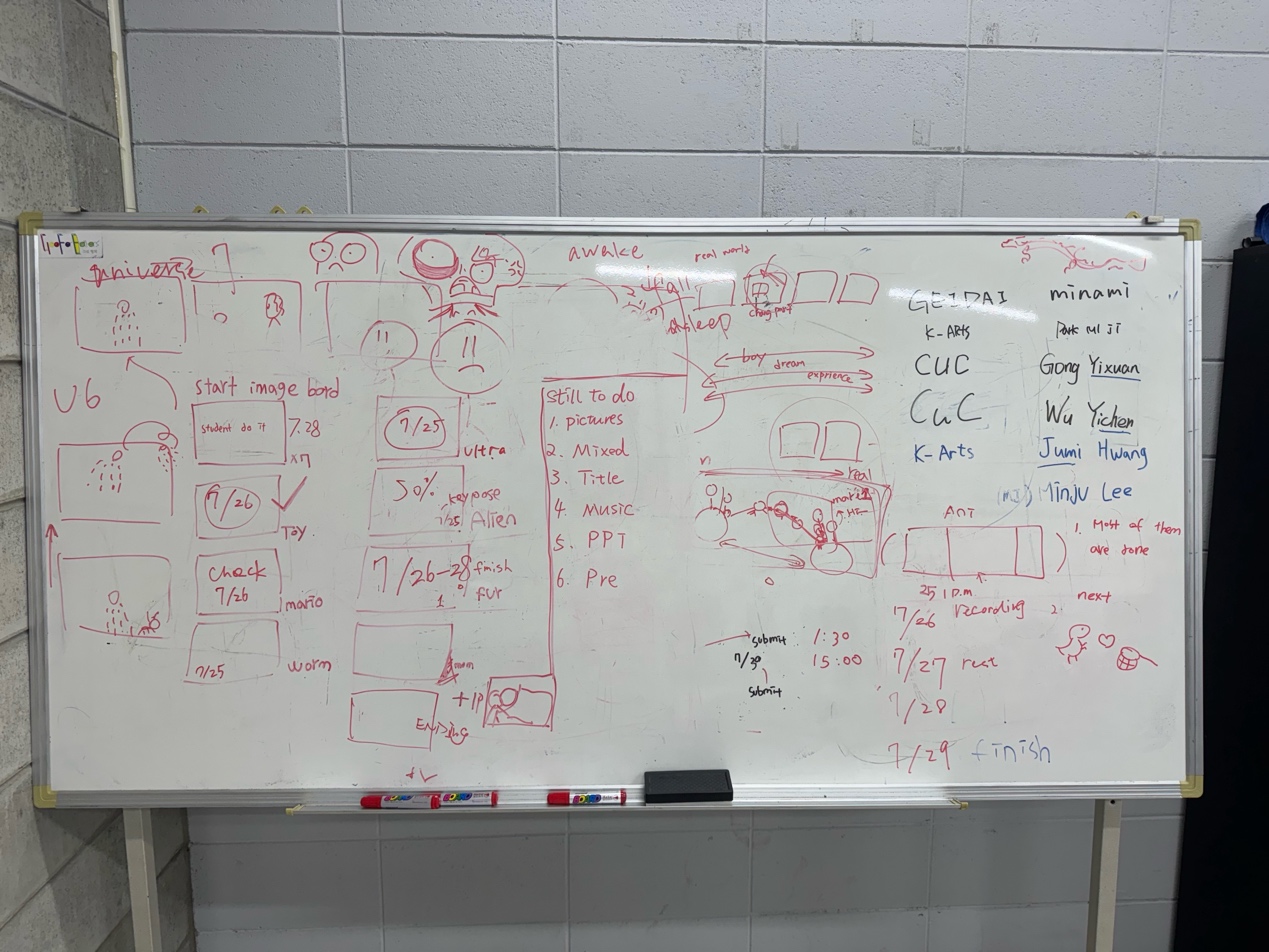 universe 7
awake
real world
fall
asleep
chang part
boy
dream
exprience
U6
start image bord
student do it
7.28
x7
7/26
Toy.
check
7/26
mario
7/25
worm
7/25
ultra
50%
key pose
7/25
Alien
7/26-28
finish
fur
mom
ENDing
+1P
still to do
1. pictures
2. Mixed
3. Title
4. Music
5. PPT
6. Pre
real
submit 1:30
7/30 15:00
submit
GEIDAI minami
K-ARTS Park MI JI
CUC Gong Yixuan
CUC Wu Yichen
K-Arts Jumi Hwang
Minju Lee
Ani
1. Most of them
are done
25 1 P.M
7/26 recording
2. next
7/27 rest
7/28
7/29 finish